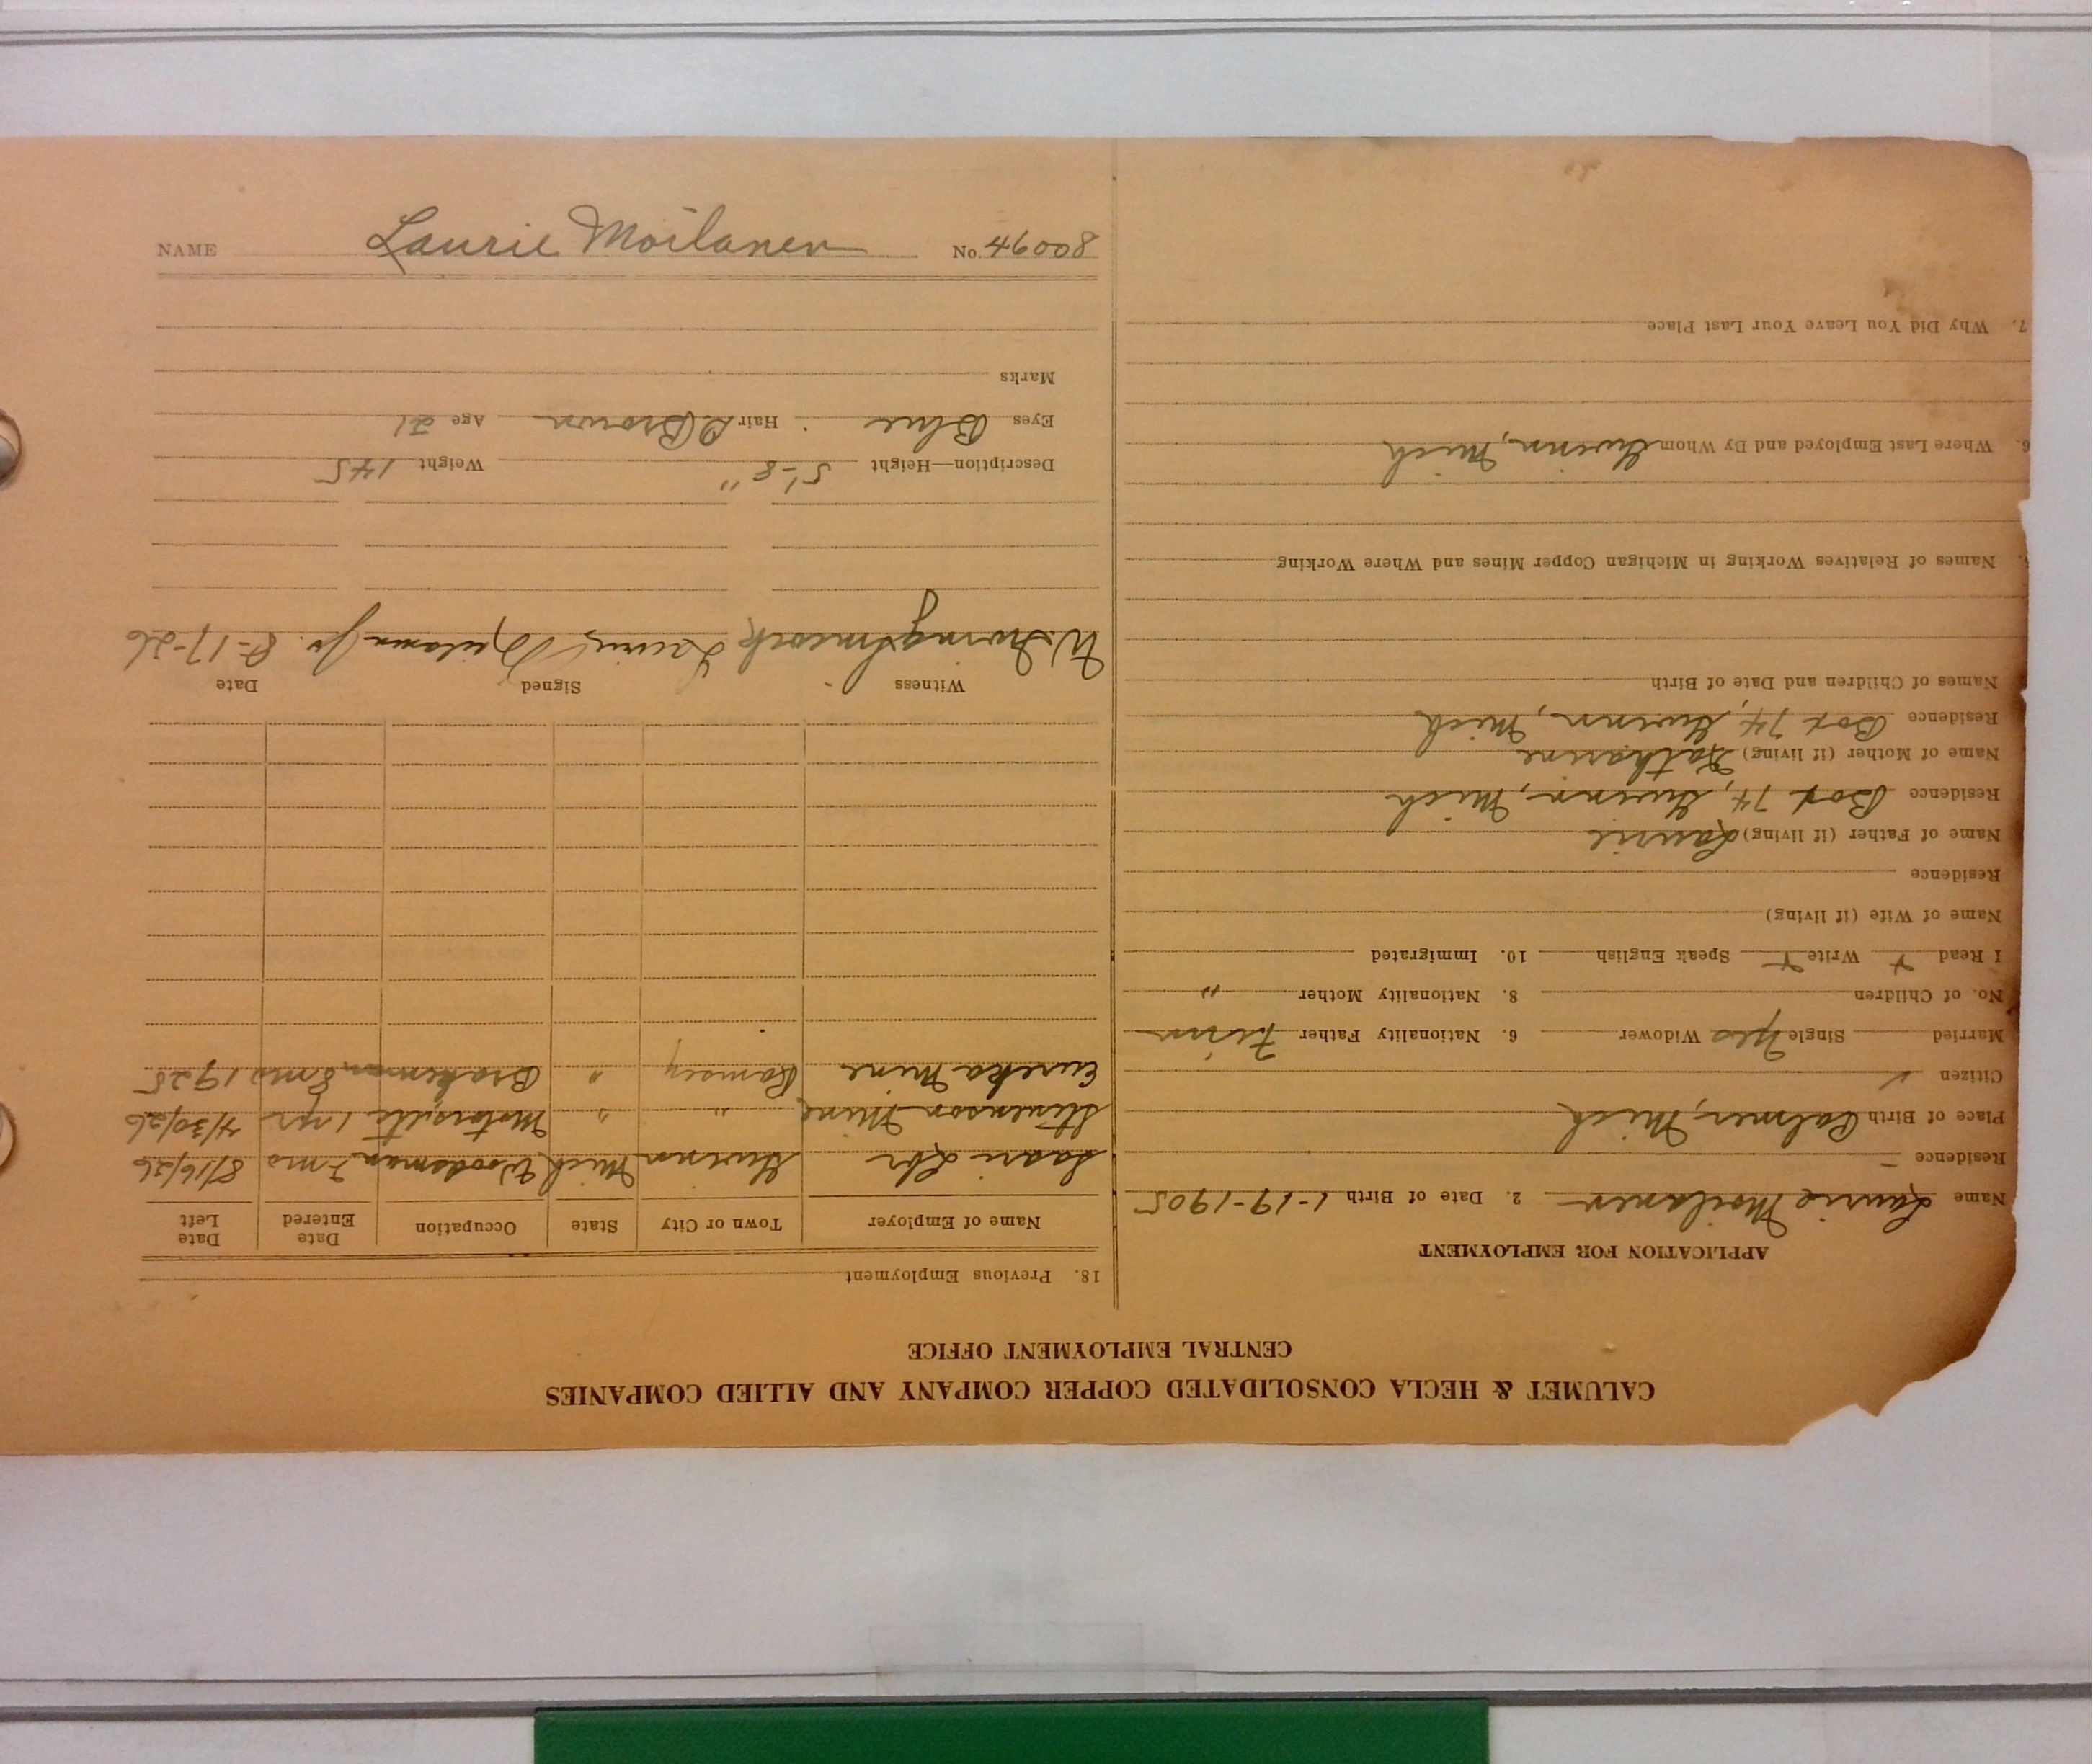 CALUMET & HECLA CONSOLIDATED COPPER COMPANY AND ALLIED COMPANIES
CENTRAL EMPLOYMENT OFFICE
APPLICATION FOR EMPLOYMENT
Name Laurie Moilanen 2. Date of Birth 1-19-1905
Residence —
Place of Birth Palmer, Mich
Citizen ✓
Married Single Yes Widower 6. Nationality Father Finn
No. of Children 8. Nationality Mother "
I Read + Write + Speak English 10. Immigrated
Name of Wife (if living)
Residence
Name of Father (if living) Laurie
Residence Box 74, Gwinn, Mich
Name of Mother (if living) Katharine
Residence Box 74, Gwinn, Mich
Names of Children and Date of Birth
Names of Relatives Working in Michigan Copper Mines and Where Working
6. Where Last Employed and By Whom Gwinn, Mich
7. Why Did You Leave Your Last Place
18. Previous Employment
Name of Employer Town or City State Occupation Date Entered Date Left
Saari Lbr Gwinn Mich Woodsman 3 mo 8/16/26
Stevenson Mine " " 1 yr 4/30/26
Eureka Mine Ramsey " Brakeman 8 mo 1925
Witness Signed Date
Laurie Moilanen Jr. 8-17-26
Description—Height 5'-8" Weight 145
Eyes Blue Hair D Brown Age 21
Marks
NAME Laurie Moilanen No. 46008